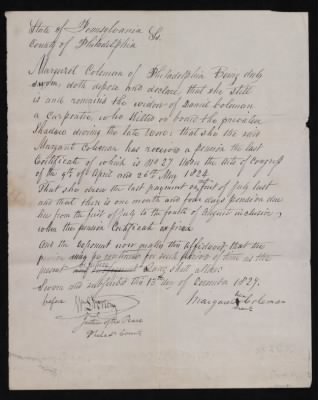 State of Pennsylvania } Ss.
County of Philadelphia
Margaret Coleman of Philadelphia Being duly
sworn, doth depose and declare that she still
is and remains the widow of Daniel Coleman
a carpenter, who died on board the privateer
Shadow during the late war: that she the said
Margaret Coleman has received a pension the last
Certificate of which is No 27 under the acts of Congress
of the 9th of April and 26th May 1824.
That she drew the last payment on first of July last
and that there is one month and four days pension due
her from the first of July to the fourth of August inclusive,
when the pension Certificate expired
And the deponent now makes this affidavit, that the
pension may be continued for such period of time as the
present
Sworn and subscribed the 15th day of December 1829.
before
Justice of the Peace
Philad County
Margaret Coleman
her
mark